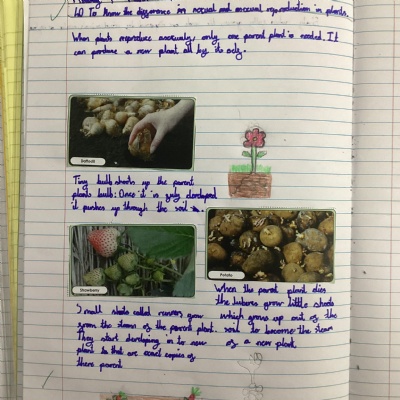 LO To know the difference in sexual and asexual reproduction in plants.
When plants reproduce asexually, only one parent plant is needed. It
can produce a new plant all by its self.
Daffodil
Tiny bulb shoots up the parent
plants bulb. Once it is fully developed
it pushes up through the soil
Strawberry
Potato
Small shoots called runners grow
from the stem of the parent plant.
They start developing in to new
plant to that are exact copies of
there parent
When the parent plant dies
the tubers grow little shoots
which grows up out of the
soil to become the stem
of a new plant